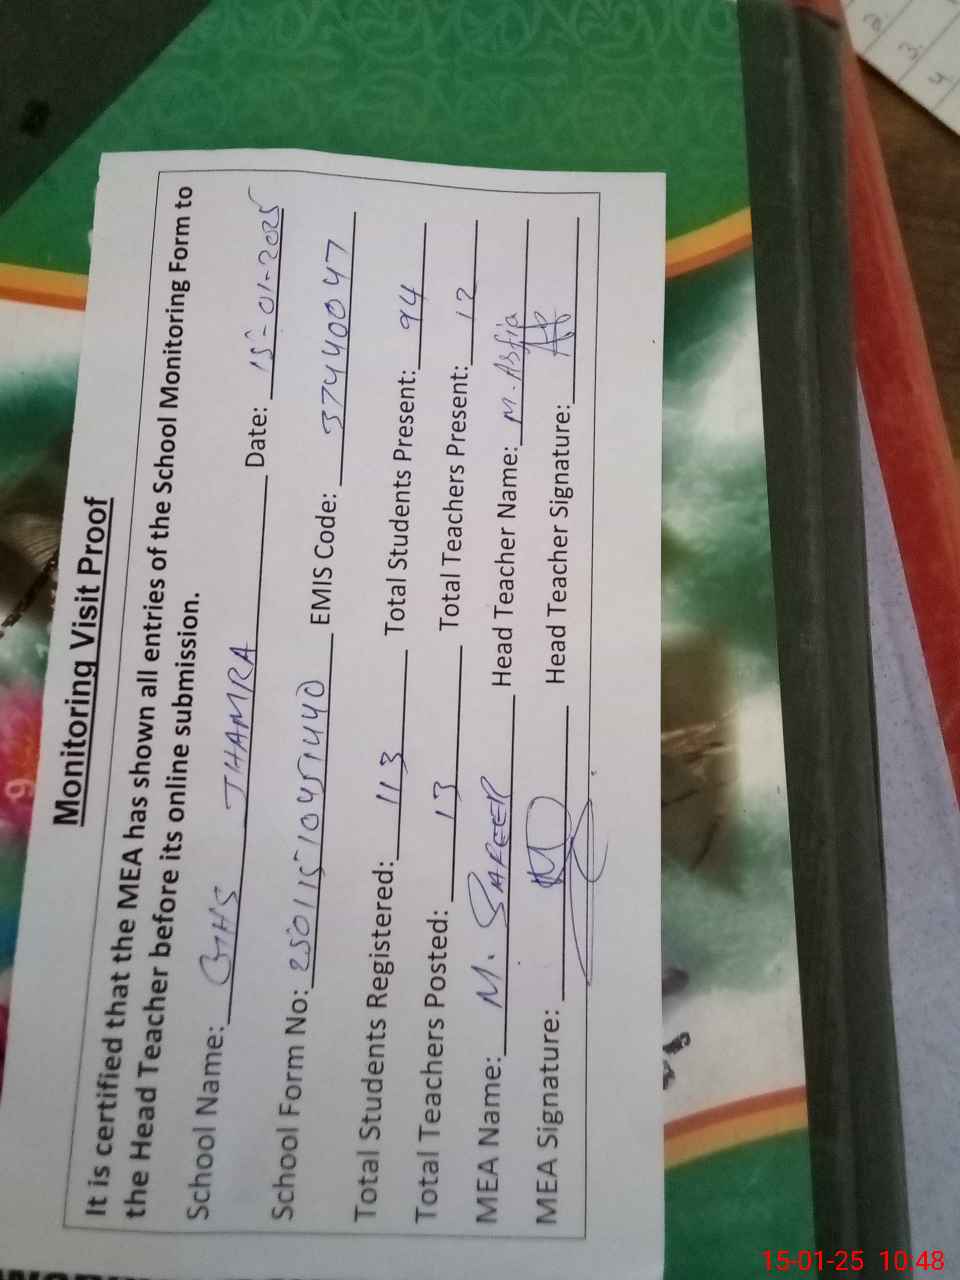 Monitoring Visit Proof
It is certified that the MEA has shown all entries of the School Monitoring Form to
the Head Teacher before its online submission.
School Name: GHS THAMRA Date: 15-01-2025
School Form No: 25011510451440 EMIS Code: 37440047
Total Students Registered: 113 Total Students Present: 94
Total Teachers Posted: 13 Total Teachers Present: 12
MEA Name: M. SAFEER Head Teacher Name: M.
MEA Signature: Head Teacher Signature:
9
2.
3.
4.
15-01-25 10:48